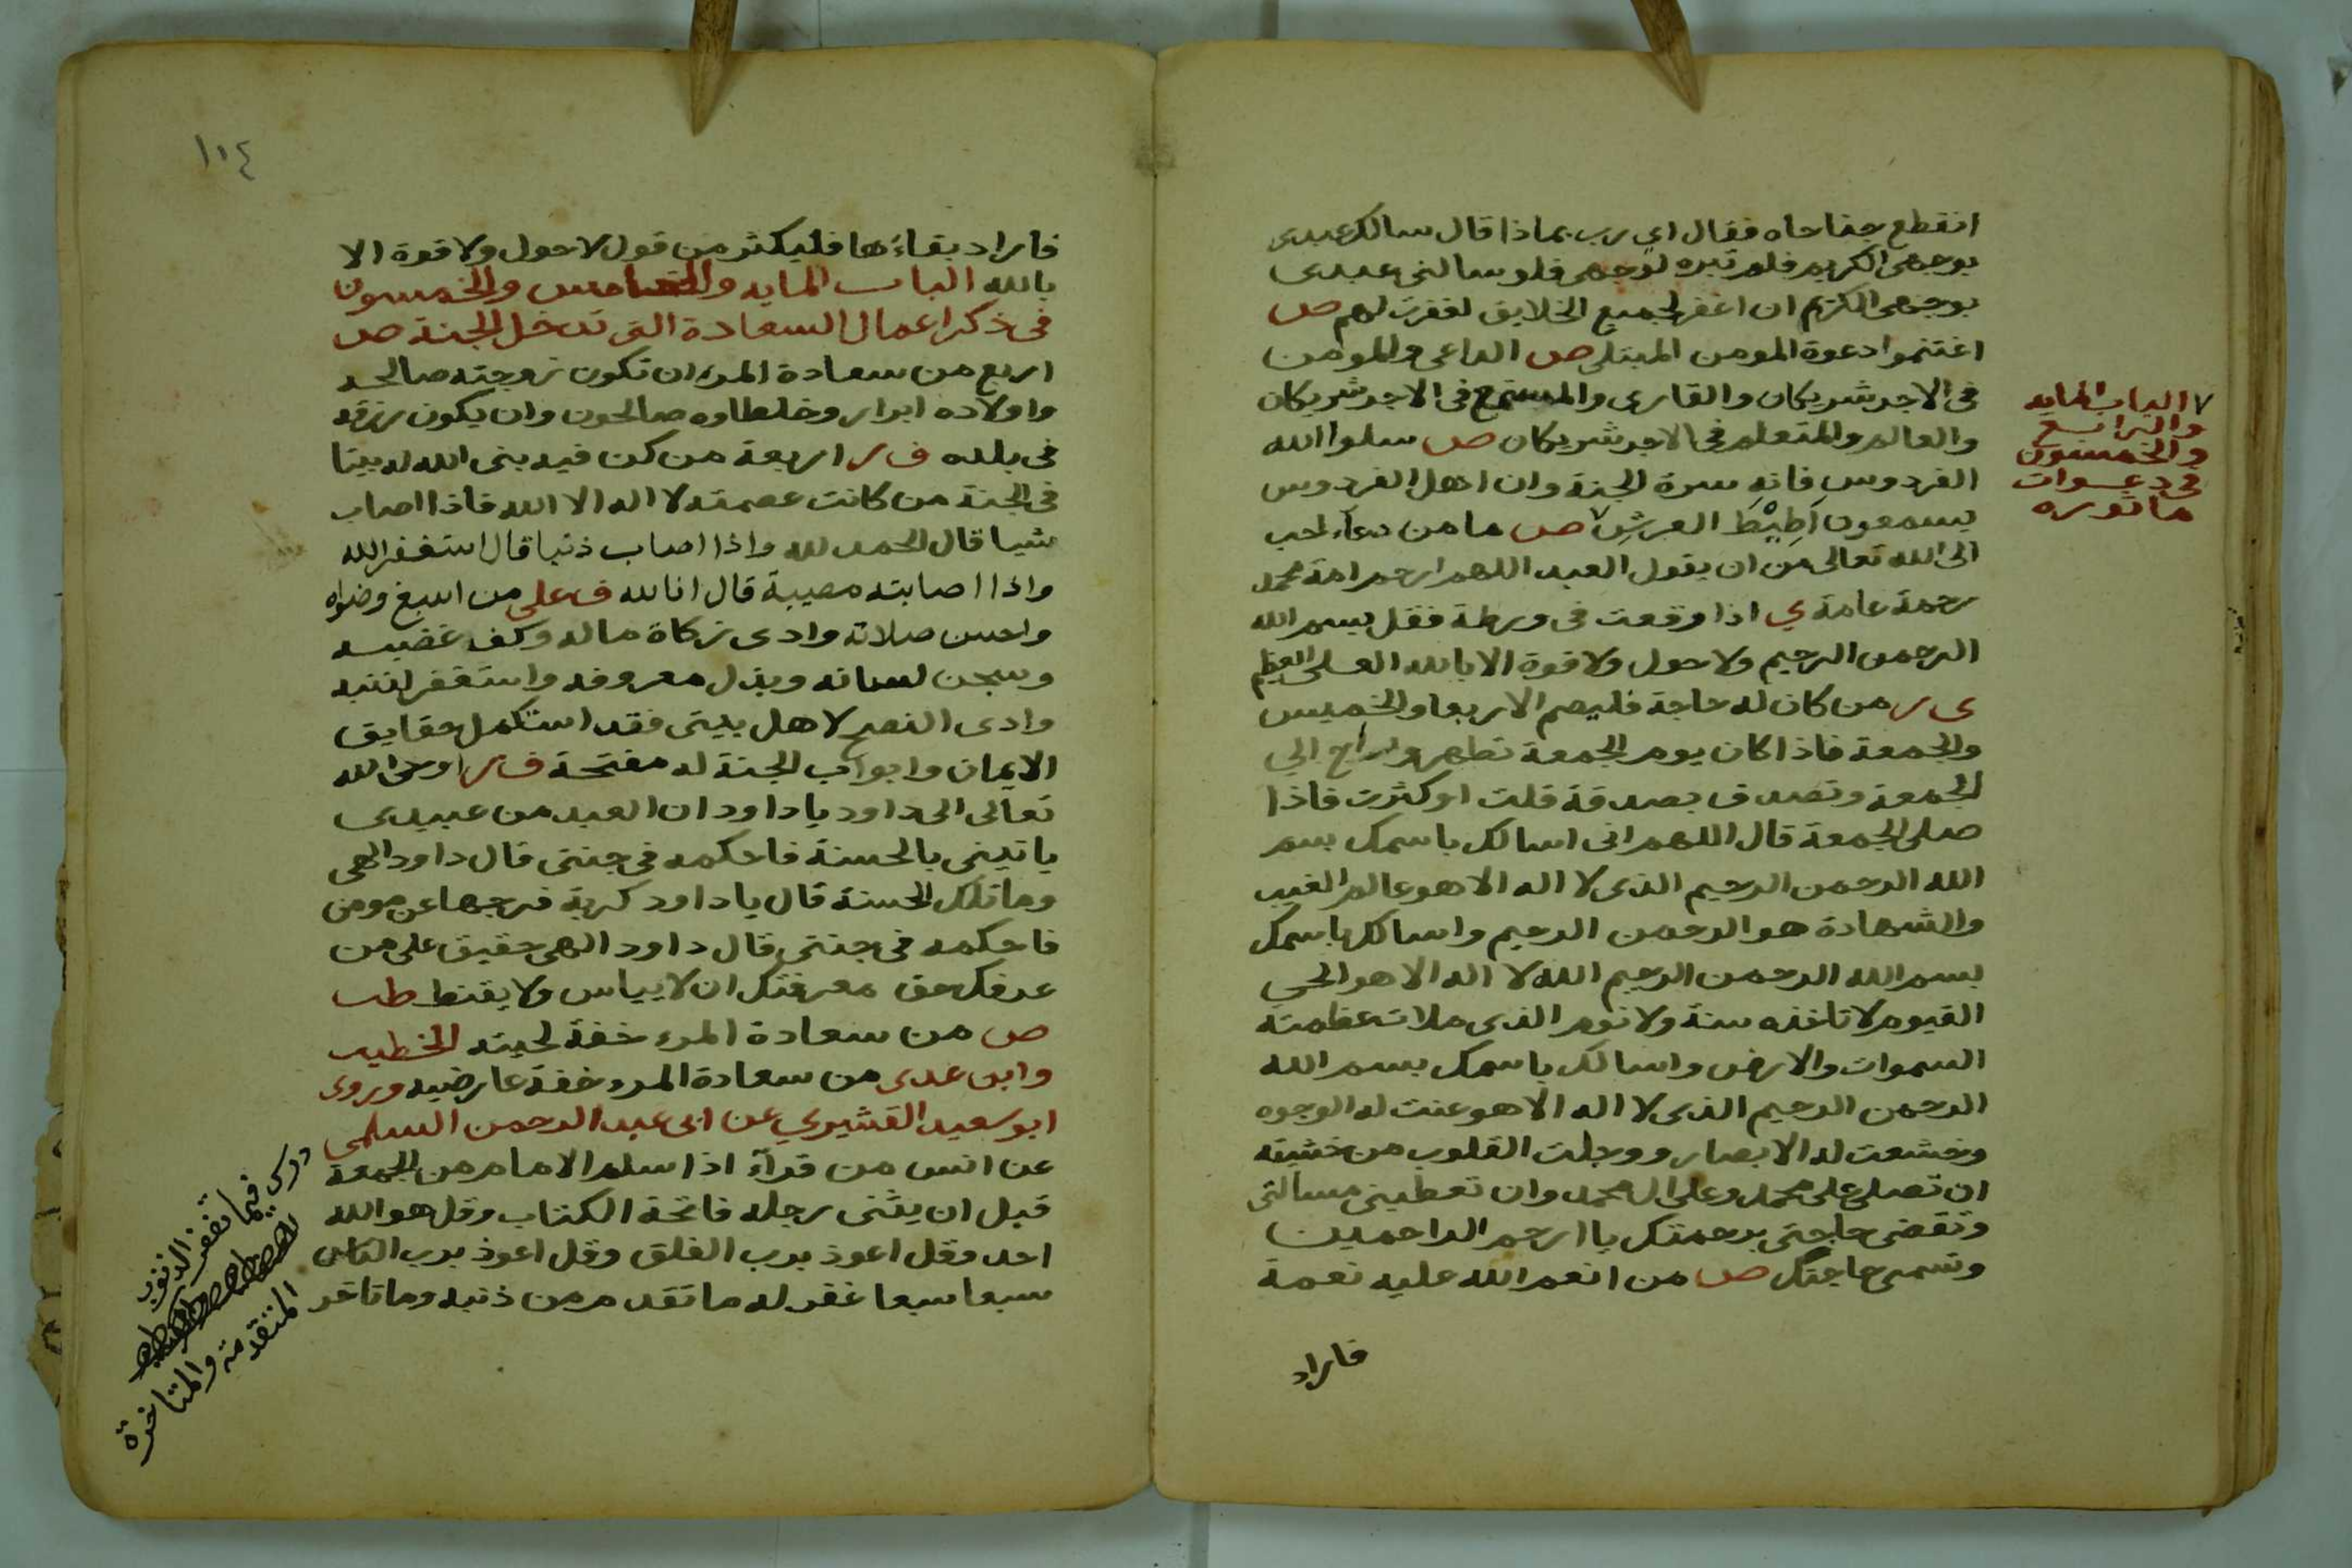 انقطع جناحاه فقال اي رب بماذا قال سالك عبدى
بوجهى الكريم فلم تبره لوجهى فلو سالنى عبدى
بوجهى الكريم ان اغفر لجميع الخلايق لغفرت لهم ص
اغتنموا دعوة المومن المبتلى ص الداعى والمومن
فى الاجر شريكان والقارى والمستمع فى الاجر شريكان
والعالم والمتعلم فى الاجر شريكان ص سلوا الله
الفردوس فانه سرة الجنة وان اهل الفردوس
يسمعون اَطِيْطَ العرشِ ٧ ص ما من دعآء احب
الى الله تعالى من ان يقول العبد اللهم ارحم امة محمد
رحمة عامة ي اذا وقعت فى ورطة فقل بسم الله
الرحمن الرحيم ولا حول ولا قوة الا بالله العلى العظيم
ى ر من كان له حاجة فليصم الاربعا والخميس
والجمعة فاذا كان يوم الجمعة تطهر وراح الي
الجمعة وتصدق بصدقة قلت او كثرت فاذا
صلى الجمعة قال اللهم انى اسالك باسمك بسم
الله الرحمن الرحيم الذى لا اله الا هو عالم الغيب
والشهادة هو الرحمن الرحيم واسالك باسمك
بسم الله الرحمن الرحيم الله لا اله الا هو الحي
القيوم لا تاخذه سنة ولا نوم الذى ملات عظمته
السموات والارض واسالك باسمك بسم الله
الرحمن الرحيم الذى لا اله الا هو عنت له الوجوه
وخشعت له الابصار ووجلت القلوب من خشيته
ان تصلى على محمد وعلى ال محمد وان تعطينى مسالتى
وتقضى حاجتى برحمتك يا ارحم الراحمين
وتسمى حاجتك ص من انعم الله عليه نعمة
فاراد
٧ الباب المايه
والرابع
والخمسون
فى دعوات
ماثوره
١٠٤
فاراد بقاءها فليكثر من قول لا حول ولا قوة الا
بالله الباب المايه والخامس والخمسون
فى ذكر اعمال السعادة التى تدخل الجنة ص
اربع من سعادة المرء ان تكون زوجته صالحه
واولاده ابرار وخلطاوه صالحون وان يكون رزقه
فى بلده ف ر اربعة من كن فيه بنى الله له بيتا
فى الجنة من كانت عصمته لا اله الا الله فاذا اصاب
شيا قال الحمد لله واذا اصاب ذنبا قال استغفر الله
واذا اصابته مصيبة قال انا لله ف على من اسبغ وضواه
واحسن صلاته وادى زكاة ماله وكف غضبه
وسجن لسانه وبذل معروفه واستغفر لذنبه
وادى النصح لاهل بيتى فقد استكمل حقايق
الايمان وابواب الجنة له مفتحة ف ر اوحى الله
تعالى الى داود يا داود ان العبد من عبيدى
ياتينى بالحسنة فاحكمه فى جنتى قال داود الهى
وما تلك الحسنة قال يا داود كربة فرجها عن مومن
فاحكمه فى جنتى قال داود الهى حقيق على من
عرفك حق معرفتك ان لا يياس ولا يقنط طب
ص من سعادة المرء خفة لحيته الخطيب
وابن عدى من سعادة المرء خفة عارضيه وروى
ابو سعيد القشيري عن ابى عبد الرحمن السلمى
عن انس من قرآ اذا سلم الامام من الجمعة
قبل ان يثنى رجله فاتحة الكتاب وقل هو الله
احد وقل اعوذ برب الفلق وقل اعوذ برب الناس
سبعا سبعا غفر له ما تقدم من ذنبه وما تاخر
فيما تغفر الذنوب
المتقدمة والمتاخرة